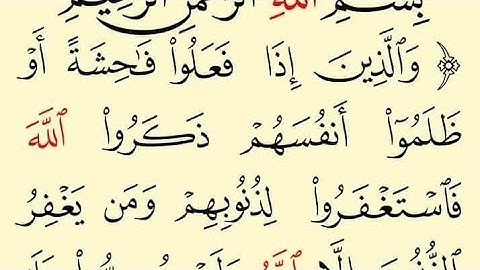 بِسْمِ ٱللَّهِ ٱلرَّحْمَٰنِ ٱلرَّحِيمِ
﴿ وَٱلَّذِينَ إِذَا فَعَلُوا۟ فَـٰحِشَةً أَوْ
ظَلَمُوٓا۟ أَنفُسَهُمْ ذَكَرُوا۟ ٱللَّهَ
فَٱسْتَغْفَرُوا۟ لِذُنُوبِهِمْ وَمَن يَغْفِرُ
ٱلذُّنُوبَ إِلَّا ٱللَّهُ وَلَمْ